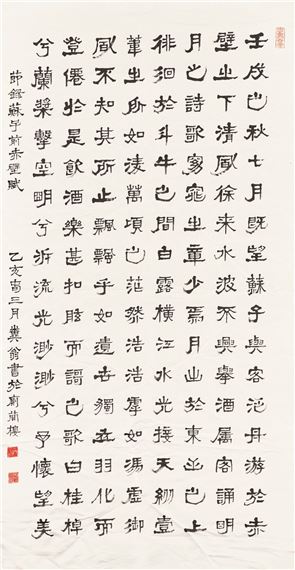 壬戌之秋七月既望蘇子與客泛舟游於赤
壁之下清風徐來水波不興舉酒屬客誦明
月之詩歌窈窕之章少焉月出於東山之上
徘徊於斗牛之間白露橫江水光接天縱壹
葦之所如凌萬頃之茫然浩浩乎如馮虛御
風不知其所止飄飄乎如遺世獨立羽化而
登僊於是飲酒樂甚扣舷而謌之歌曰桂棹
兮蘭槳擊空明兮泝流光渺渺兮予懷望美
節錄蘇子前赤壁賦 乙亥三月糞翁書於樓